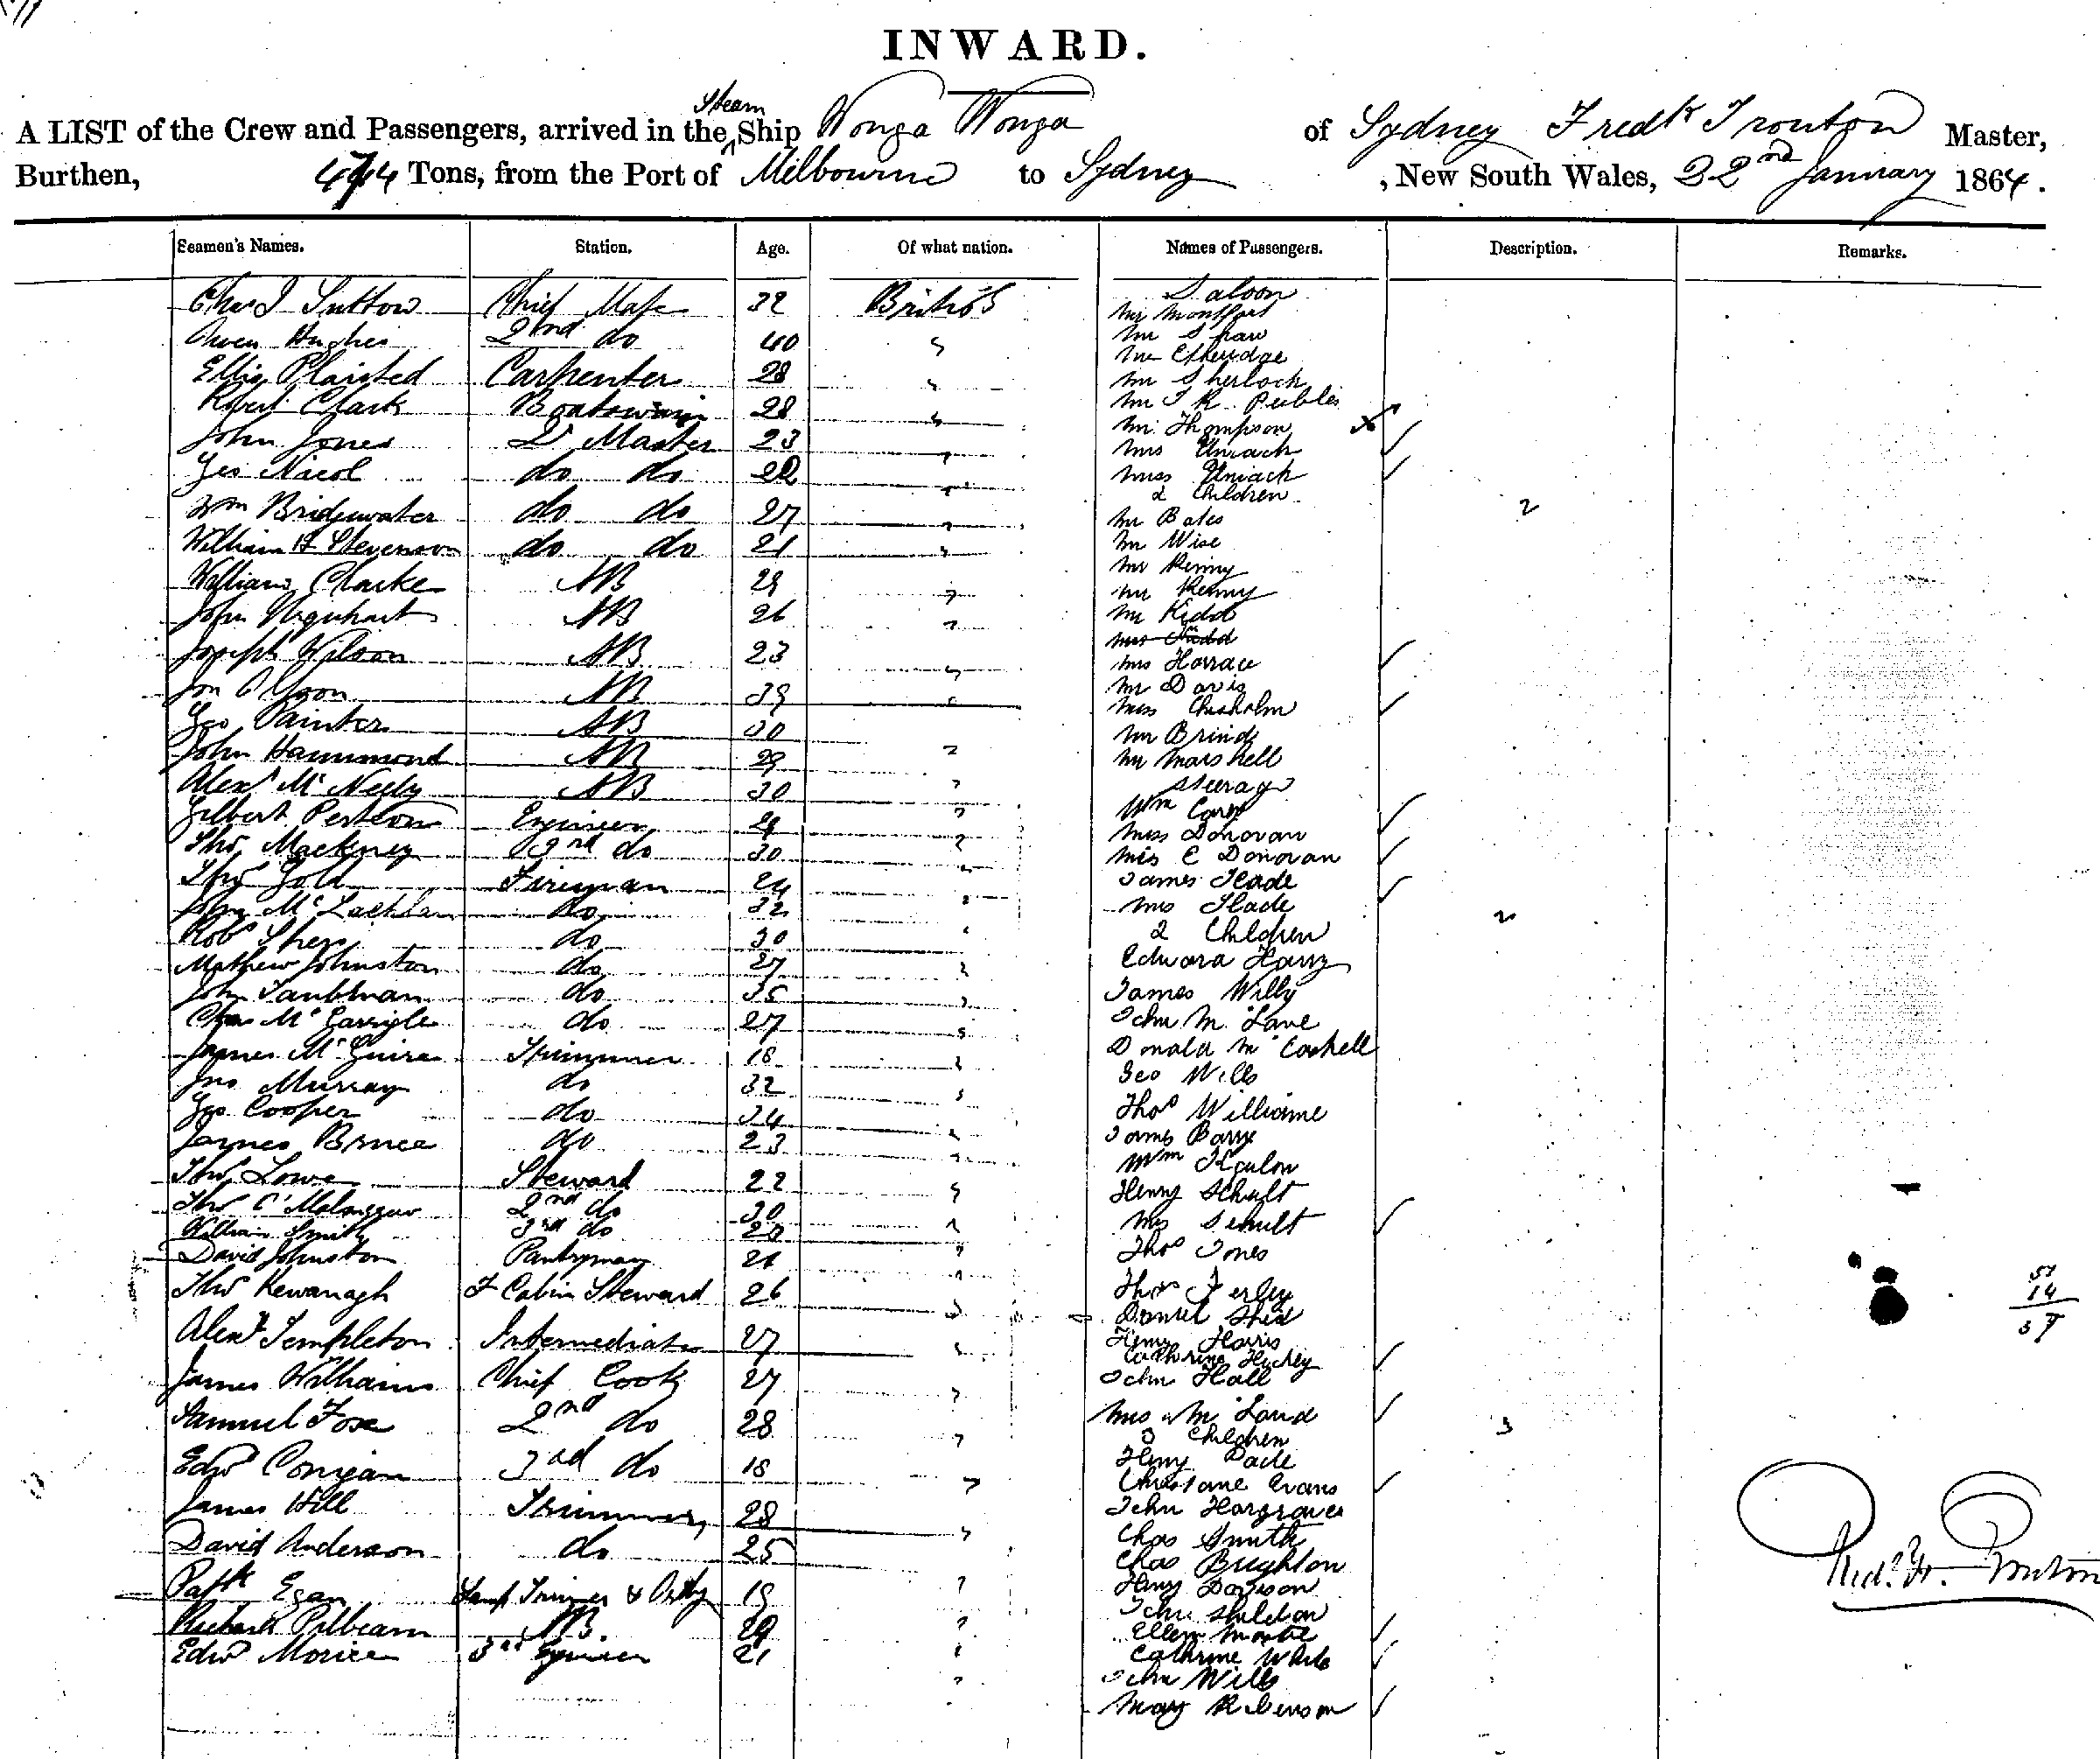 INWARD.
A LIST of the Crew and Passengers, arrived in the Steam Ship Wonga Wonga of Sydney Fredk Trouton Master,
Burthen, 474 Tons, from the Port of Melbourne to Sydney, New South Wales, 22nd January 1864.
Seamen's Names. Station. Age. Of what nation. Names of Passengers. Description. Remarks.
Saloon
Chas J Suttow Chief Mate 32 British Mr Montfort
Owen Hughes 2nd do 40 " Mr Shaw
Mr Etheridge
Ellis Plaisted Carpenter 28 " Mr Sherlock
Robert Clark Boatswain 28 " Mr J R Peebles
Mr Thompson
John Jones Qr Master 23 " Mrs Uniack
Geo Nicol do do 22 " Miss Uniack
2 Children 2
Wm Bridgewater do do 27 " Mr Bates
William H Stevenson do do 21 " Mr Wise
Mr Kenny
William Clarke AB 29 " Mr Kenny
John Urquhart AB 26 " Mr Kidd
Mrs Kidd
Joseph Wilson AB 23 " Mrs Horrace
Jon AB 39 " Mr Davis
Miss Chisholm
Geo Painter AB 30 Mr Brind
John Hammond AB 29 " Mr Marshell
Alexr Mc Neely AB 30 " Steerage
Gilbert Engineer 29 " Wm
Miss Donovan
Thos Mackney 2nd do 30 " Miss C Donovan
Thos Gold Fireman 24 " James Slade
John Mc Lachlan do 32 " Mrs Slade
Robt do 30 " 2 Children 2
Mathew Johnston do 27 " Edward Harry
John Taubman do 35 " James Willy
Chas Mc Carrigle do 27 " John Mc Lave
James Mc Guire Trimmer 18 " Donald Mc Coskell
Jno Murray do 32 " Geo Wills
Geo Cooper do 34 " Thos Williams
James Bruce do 23 " James Barry
Wm
Thos Lowe Steward 22 " Henry Schult
Thos 2nd do 30 " Mrs Schult
William Smith 3rd do 20 "
David Johnston Pantryman 21 " Thos Jones
Thos Kewanagh F Cabin Steward 26 " Thos Ferley
Daniel Shea
Alexr Templeton Intermediate 27 " Henry Harris
Catherine Hickey
James Williams Chief Cook 27 " John Hall
Samuel Fox 2nd do 28 " Mrs Mc Loud
3 Children 3
Edwd Corrigan 3rd do 18 " Henry Pade
Christane Evans
James Hill Trimmer 28 " John Hargraves
Chas Smith
David Anderson do 25 Chas Brighton
Patk Egan Lamp Trimmer & 19 " Henry Davison
John Sheldon
Richard Pilbeam AB 29 " Ellen
Edwd Morice 3rd Engineer 21 " Cathrine White
John Wills
Mary Robinson
51
14
37
Fred. W. Trouton